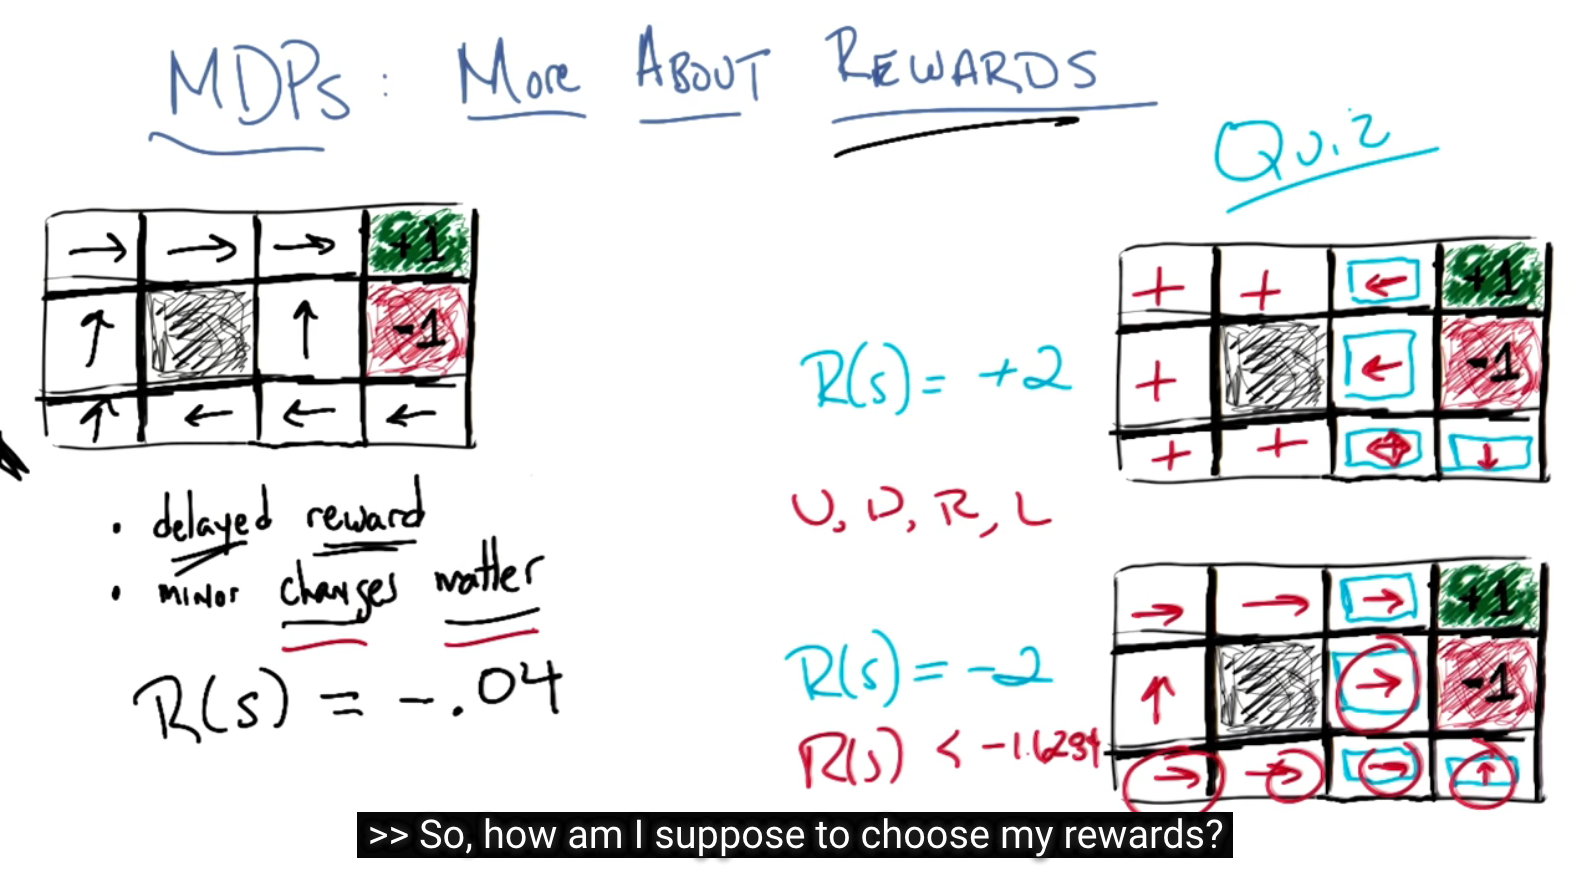 MDPs: More About Rewards
Quiz
+1
-1
• delayed reward
• minor changes matter
R(s) = -.04
+1
R(s) = +2
-1
U, D, R, L
+1
R(s) = -2
-1
R(s) < -1.6284
>> So, how am I suppose to choose my rewards?